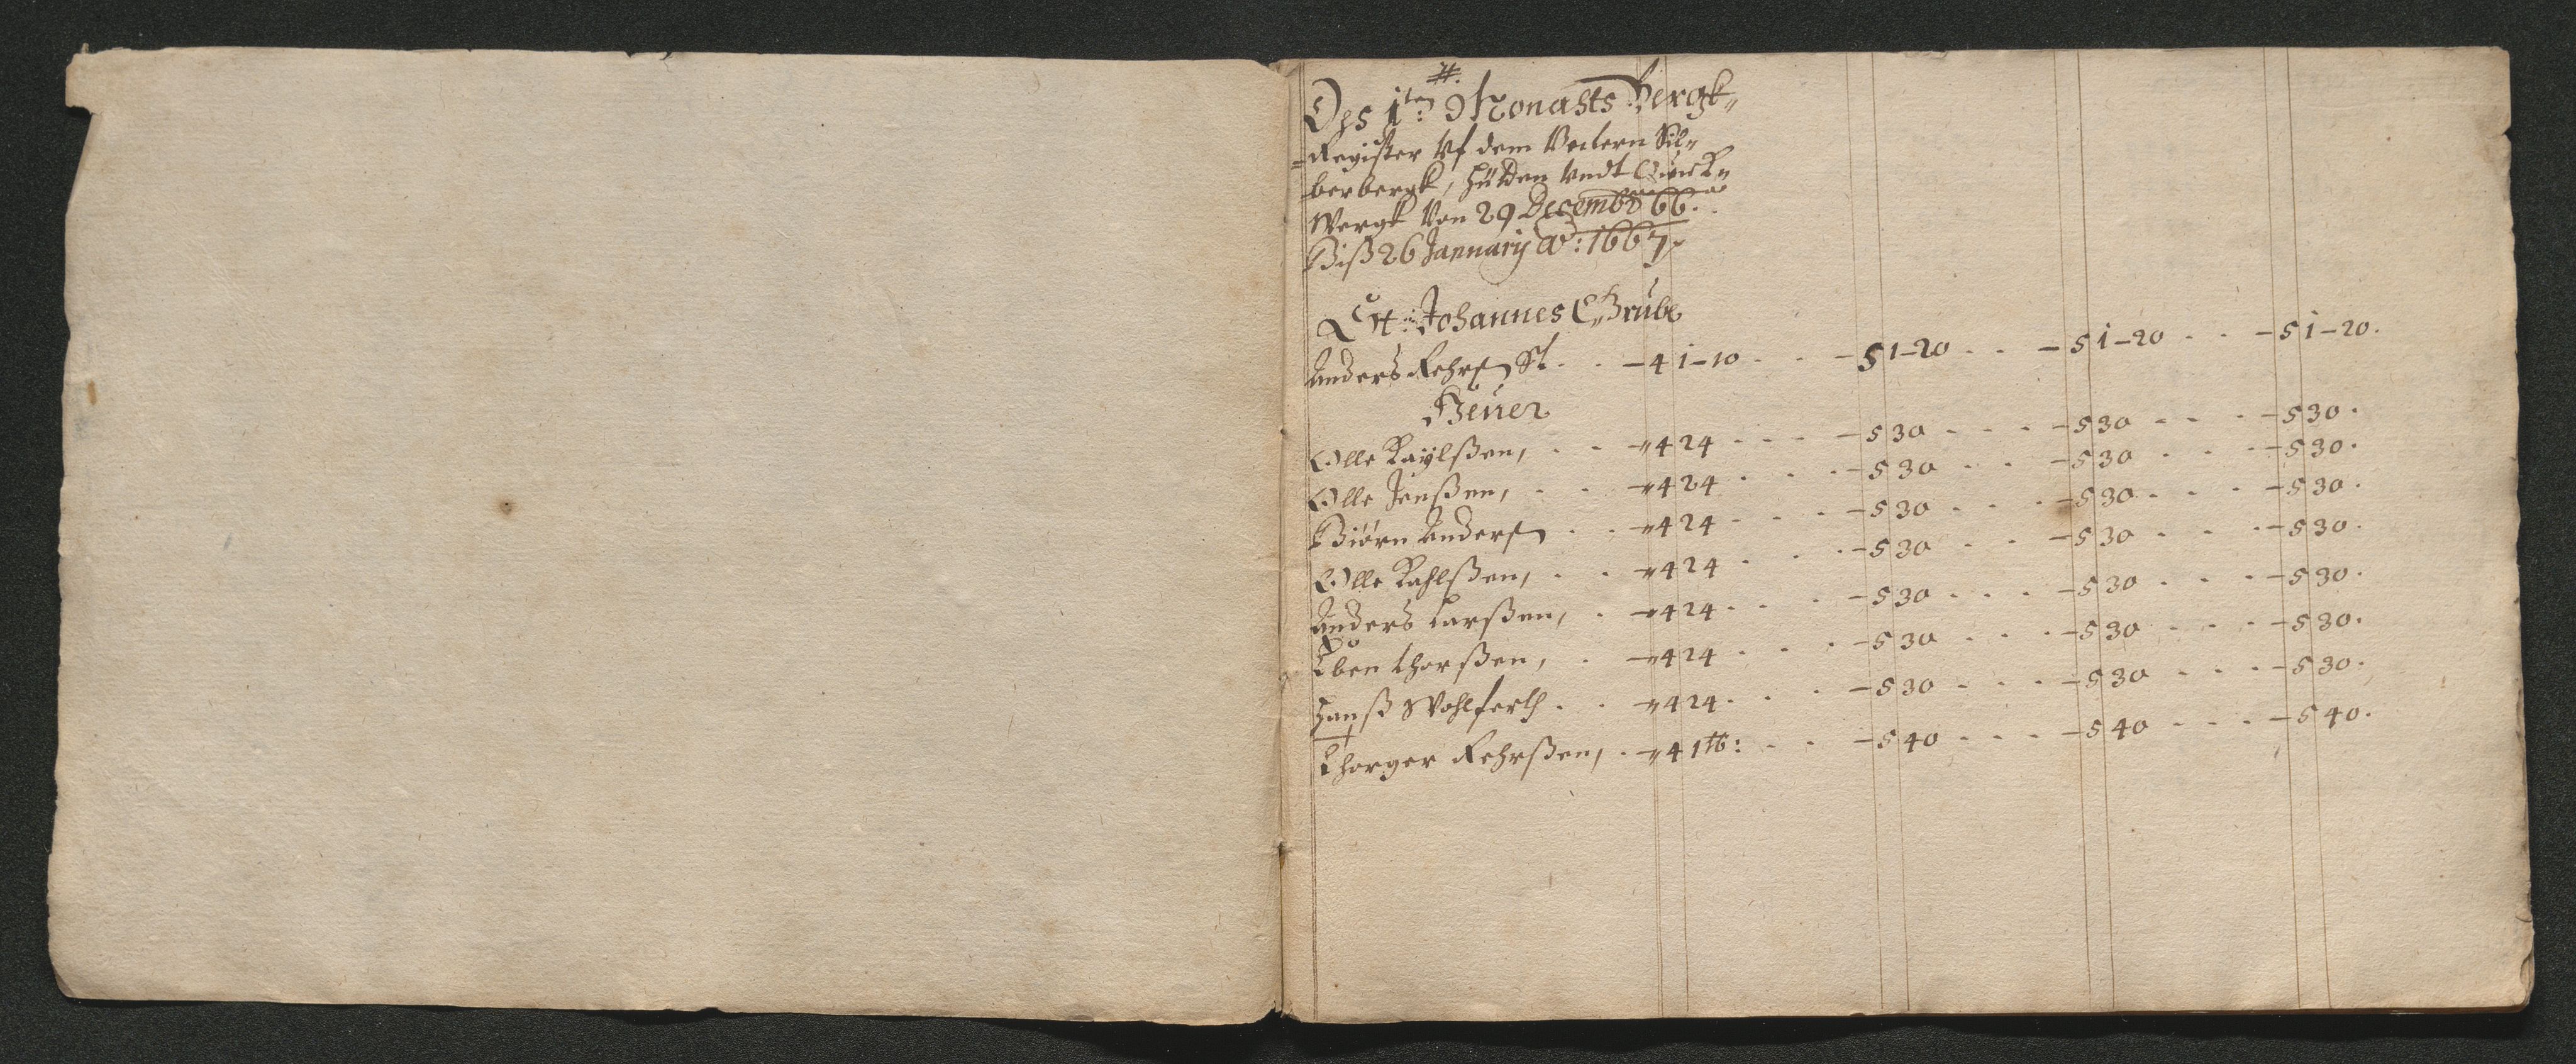 #.
Des 1ten: Monahts Bergk„
=Register vf dem Vntern Sil„
berbergk, Hütten vndt
Wergk von 29 Decembr 66.
Biß 26 January Ao: 1667.
St: Johannes Grube
Anders Fehrsen St. . . — 4 1–10 . . — 5 1–20 . . — 5 1–20 . . — 5 1–20.
Heuer
Olle Kaÿlßen, . . —„ 4 24 . . . — 5 30 . . . — 5 30 . . . — 5 30.
Olle Jenßen, . . —„ 4 24 . . . — 5 30 . . — 5 30 . . . — 5 30.
Biörn Andersen . . —„ 4 24 . . . — 5 30 . . . — 5 30 . . . — 5 30.
Olle Kahlßen, . . —„ 4 24 . . . — 5 30 . . — 5 30 . . . — 5 30.
Anders Larßen, . —„ 4 24 . . . — 5 30 . . . — 5 30 . . . — 5 30.
Eben Thorßen, . —„ 4 24 . . . — 5 30 . . . — 5 30 . . . — 5 30.
Hanß Wohlferth . . —„ 4 24 . . . — 5 30 . . . — 5 30 . . . — 5 30.
Thorger Fehrßen, . —„ 4 1 tb: . . — 5 40 . . . — 5 40 . . . — 5 40.